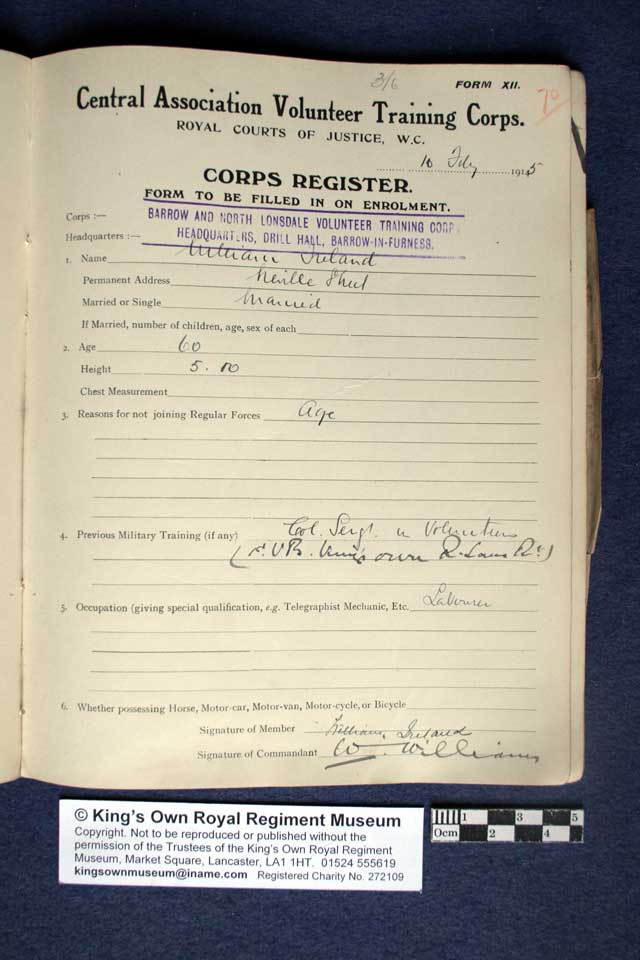 3/6
FORM XII.
70
Central Association Volunteer Training Corps.
ROYAL COURTS OF JUSTICE, W.C.
10 July 1915
CORPS REGISTER.
FORM TO BE FILLED IN ON ENROLMENT.
Corps :— BARROW AND NORTH LONSDALE VOLUNTEER TRAINING CORP
Headquarters :— HEADQUARTERS, DRILL HALL, BARROW-IN-FURNESS.
1. Name William Ireland
Permanent Address Neville Street
Married or Single Married
If Married, number of children, age, sex of each
2. Age 60
Height 5.10
Chest Measurement
3. Reasons for not joining Regular Forces Age
4. Previous Military Training (if any) Col. Sergt. in Volunteers
V.B. King's own R. Lanc Rt)
5. Occupation (giving special qualification, e.g. Telegraphist Mechanic, Etc. Labourer
6. Whether possessing Horse, Motor-car, Motor-van, Motor-cycle, or Bicycle
Signature of Member William Ireland
Signature of Commandant W. Williams
© King's Own Royal Regiment Museum
Copyright. Not to be reproduced or published without the
permission of the Trustees of the King's Own Royal Regiment
Museum, Market Square, Lancaster, LA1 1HT. 01524 555619
kingsownmuseum@iname.com Registered Charity No. 272109
1 3 5
0cm 2 4